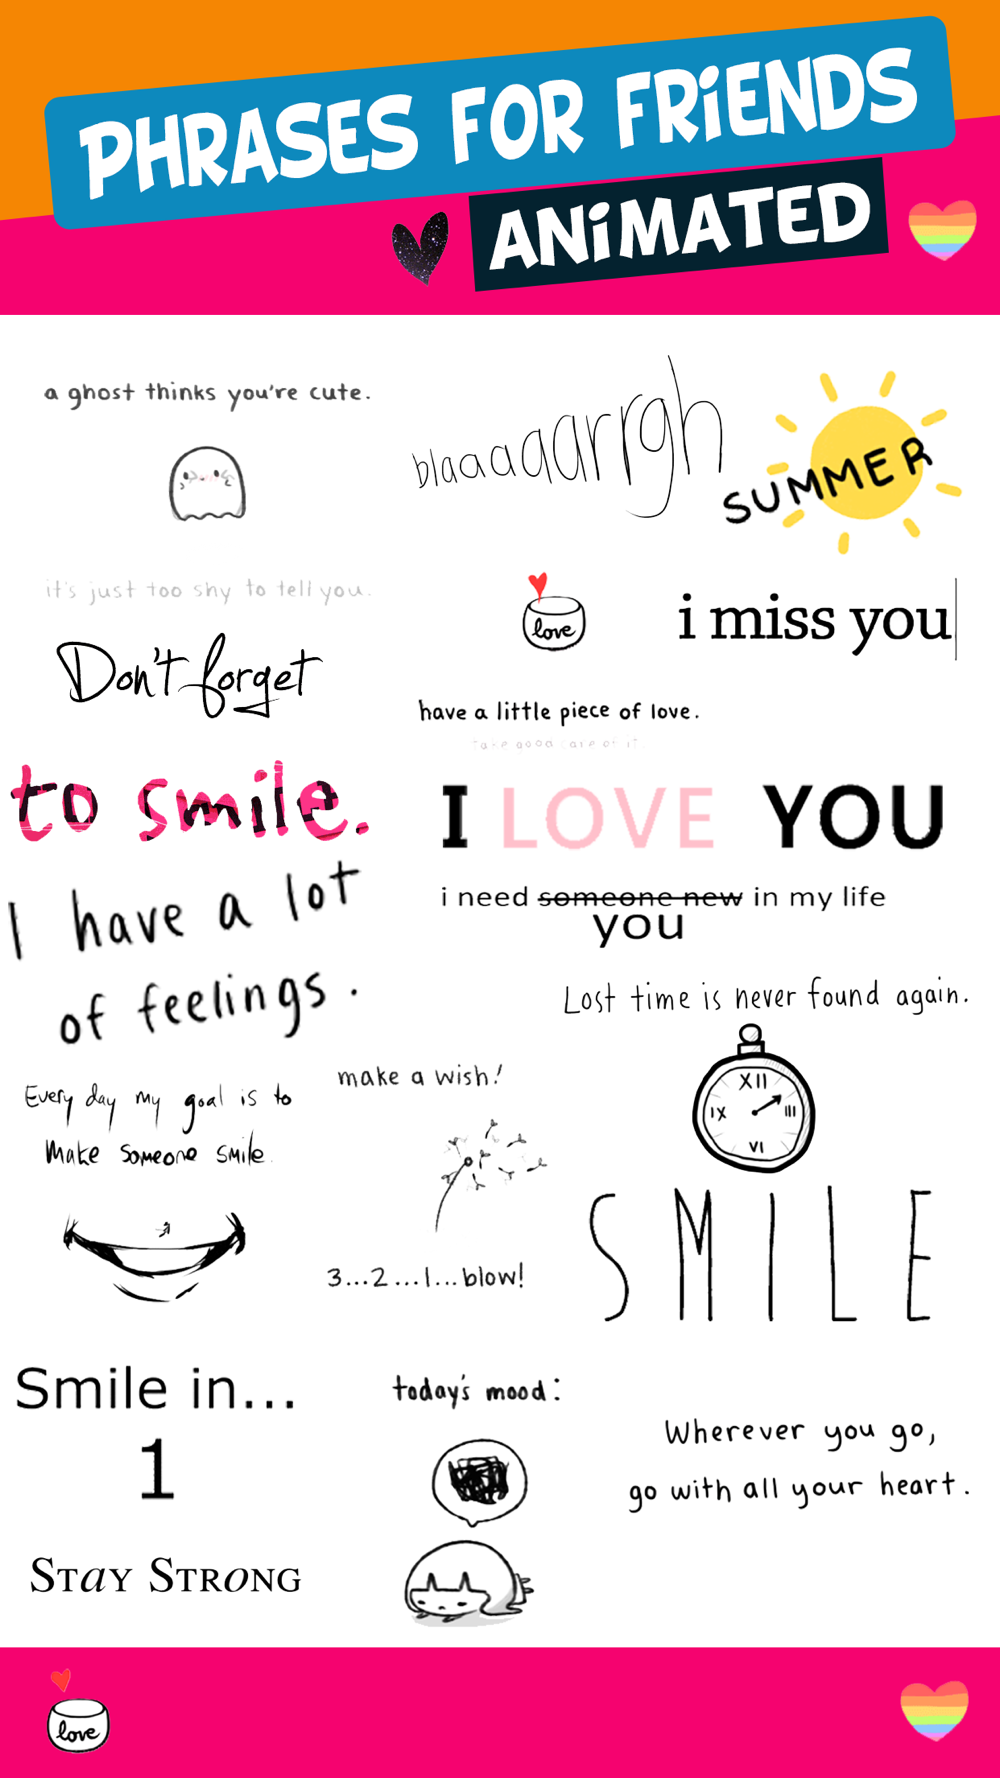 PHRASES FOR FRiENDS
ANiMATED
a ghost thinks you're cute.
it's just too shy to tell you.
blaaaaarrgh
SUMMER
Don't forget
to smile.
love
have a little piece of love.
Take good care of it.
i miss you
I LOVE YOU
i need someone new in my life
you
I have a lot
of feelings.
Lost time is never found again.
XII
IX
III
VI
Every day my goal is to
make someone smile.
make a wish!
3...2...1...blow!
SMILE
Smile in...
1
today's mood:
Wherever you go,
go with all your heart.
STaY STRoNG
love